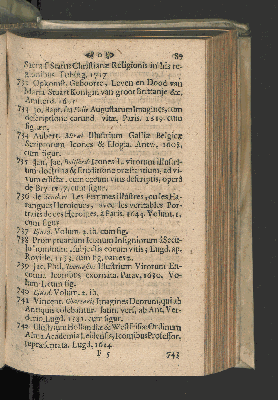 89
Sacra f Statu Christianæ Religionis in his re-
gionibus Tubing. 1717.
732 Opkomst, Geboorte, Leven en Dood van
Maria Stuart Konigin van groot Brittanje &c.
Amsterd.
733 Jo. Bapt. Augustarum Imagines, cum
descriptione earund. vitæ, Paris. 1619. cum
figur.
734 Aubert. Illustrium Galliæ Belgicæ
Scriptorum Icones & Elogia. Antv. 1608.
cum figur.
735 Jan. Jac. Icones L. virorum illustri-
um doctrina & Eruditione præstantium, ad vi-
vum effictæ, cum eorum vitis descriptis, opera
de Bry. cum figur.
736 de Les Femmes Illustres, ou les Ha-
rangues Heroiques, avec les veritables Por-
traits de ces Heroines, 2 Paris. 1644. Volum. 1.
cum figur.
737 Volum. 2. ib. cum fig.
738 Promptuarium Iconum Insigniorum à Secu-
lo hominum, subjectis eorum vitis; Lugd. ap.
Roville, 1553. cum fig. partes 2.
739 Jac. Phil. Illustrium Virorum Ex-
Iconibus exornata. Patav. 1630. Vo-
lum. 1. cum fig.
740 Volum. 2. ib.
741 Vincent. Imagines Deorum, qui ab
Antiquis colebantur. latin. vers. ab Ant. Ver-
derio, Lugd. 1581. cum figur.
742 Illustrium Hollandiæ & Westfrisiæ Ordinum
Alma Academia Leidensis, Iconibus Professor.
repræsentata. Lugd. 1614
F 5
743